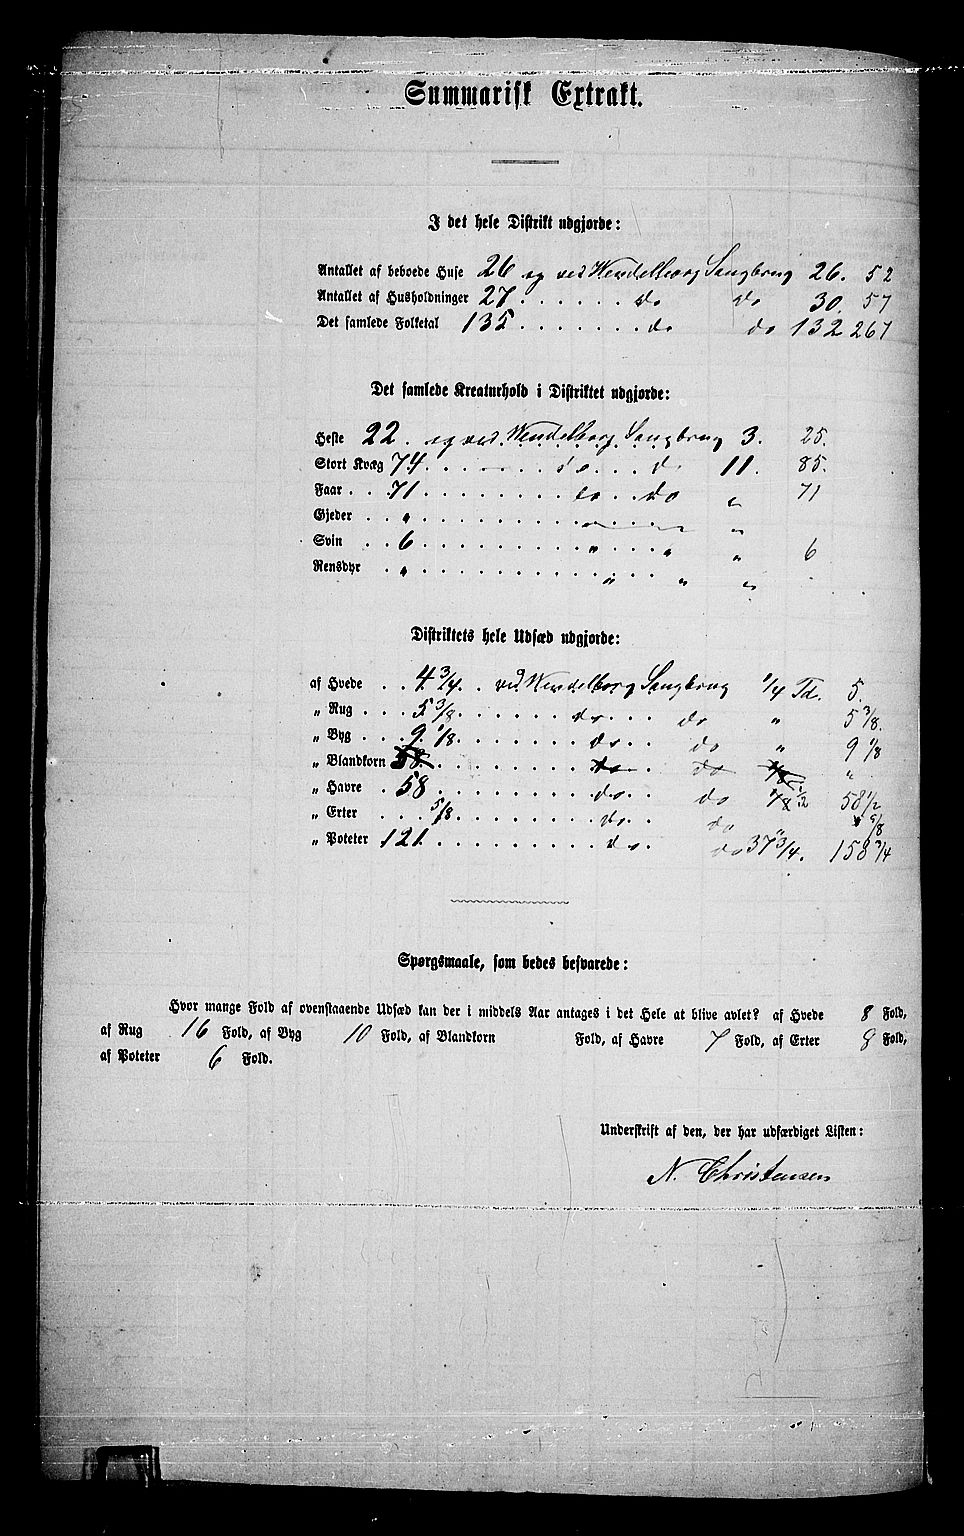 Summarisk Extrakt.
I det hele Distrikt udgjorde:
Antallet af beboede Huse 26 og ved Wendelborg Saugbrug 26. 52
Antallet af Husholdninger 27. . . . . . do do 30. 57
Det samlede Folketal 135 . . . . . . . do do 132 267
Det samlede Kreaturhold i Distriktet udgjorde:
Heste 22. og ved Wendelborg Saugbrug 3. 25.
Stort Kvæg 74. . . . . . do do 11. 85.
Faar . . . 71 . . . . . . . do . . . do „ 71
Gjeder . . „ . . . . . . . . . . . „
Svin . . 6 . . . . . . . . „ . . . . „ „ 6
Rensdyr . „ . . . . . . . . „ . . . „ „
Distriktets hele Udsæd udgjorde:
af Hvede . . 4 3/4. . . ved Wendelborg Saugbrug 1/4 Td. 5.
„ Rug . . . . 5 3/8. . . . . . do . . do „ 5 3/8.
„ Byg . . . . 9 1/8. . . . . . do . . do „ 9 1/8
„ Blandkorn 58. . . . . . . do . . do „
„ Havre . . 58 . . . . . . . do . . do 1/2 58 1/2
„ Erter . . . . 5/8 . . . . . . do . . do 5/8
„ Poteter 121 . . . . . . . . do . do 37 3/4. 158 3/4
Spørgsmaale, som bedes besvarede:
Hvor mange Fold af ovenstaaende Udsæd kan der i middels Aar antages i det Hele at blive avlet? af Hvede 8 Fold,
af Rug 16 Fold, af Byg 10 Fold, af Blandkorn Fold, af Havre 7 Fold, af Erter 8 Fold,
af Poteter 6 Fold.
Underskrift af den, der har udfærdiget Listen:
N. Christensen